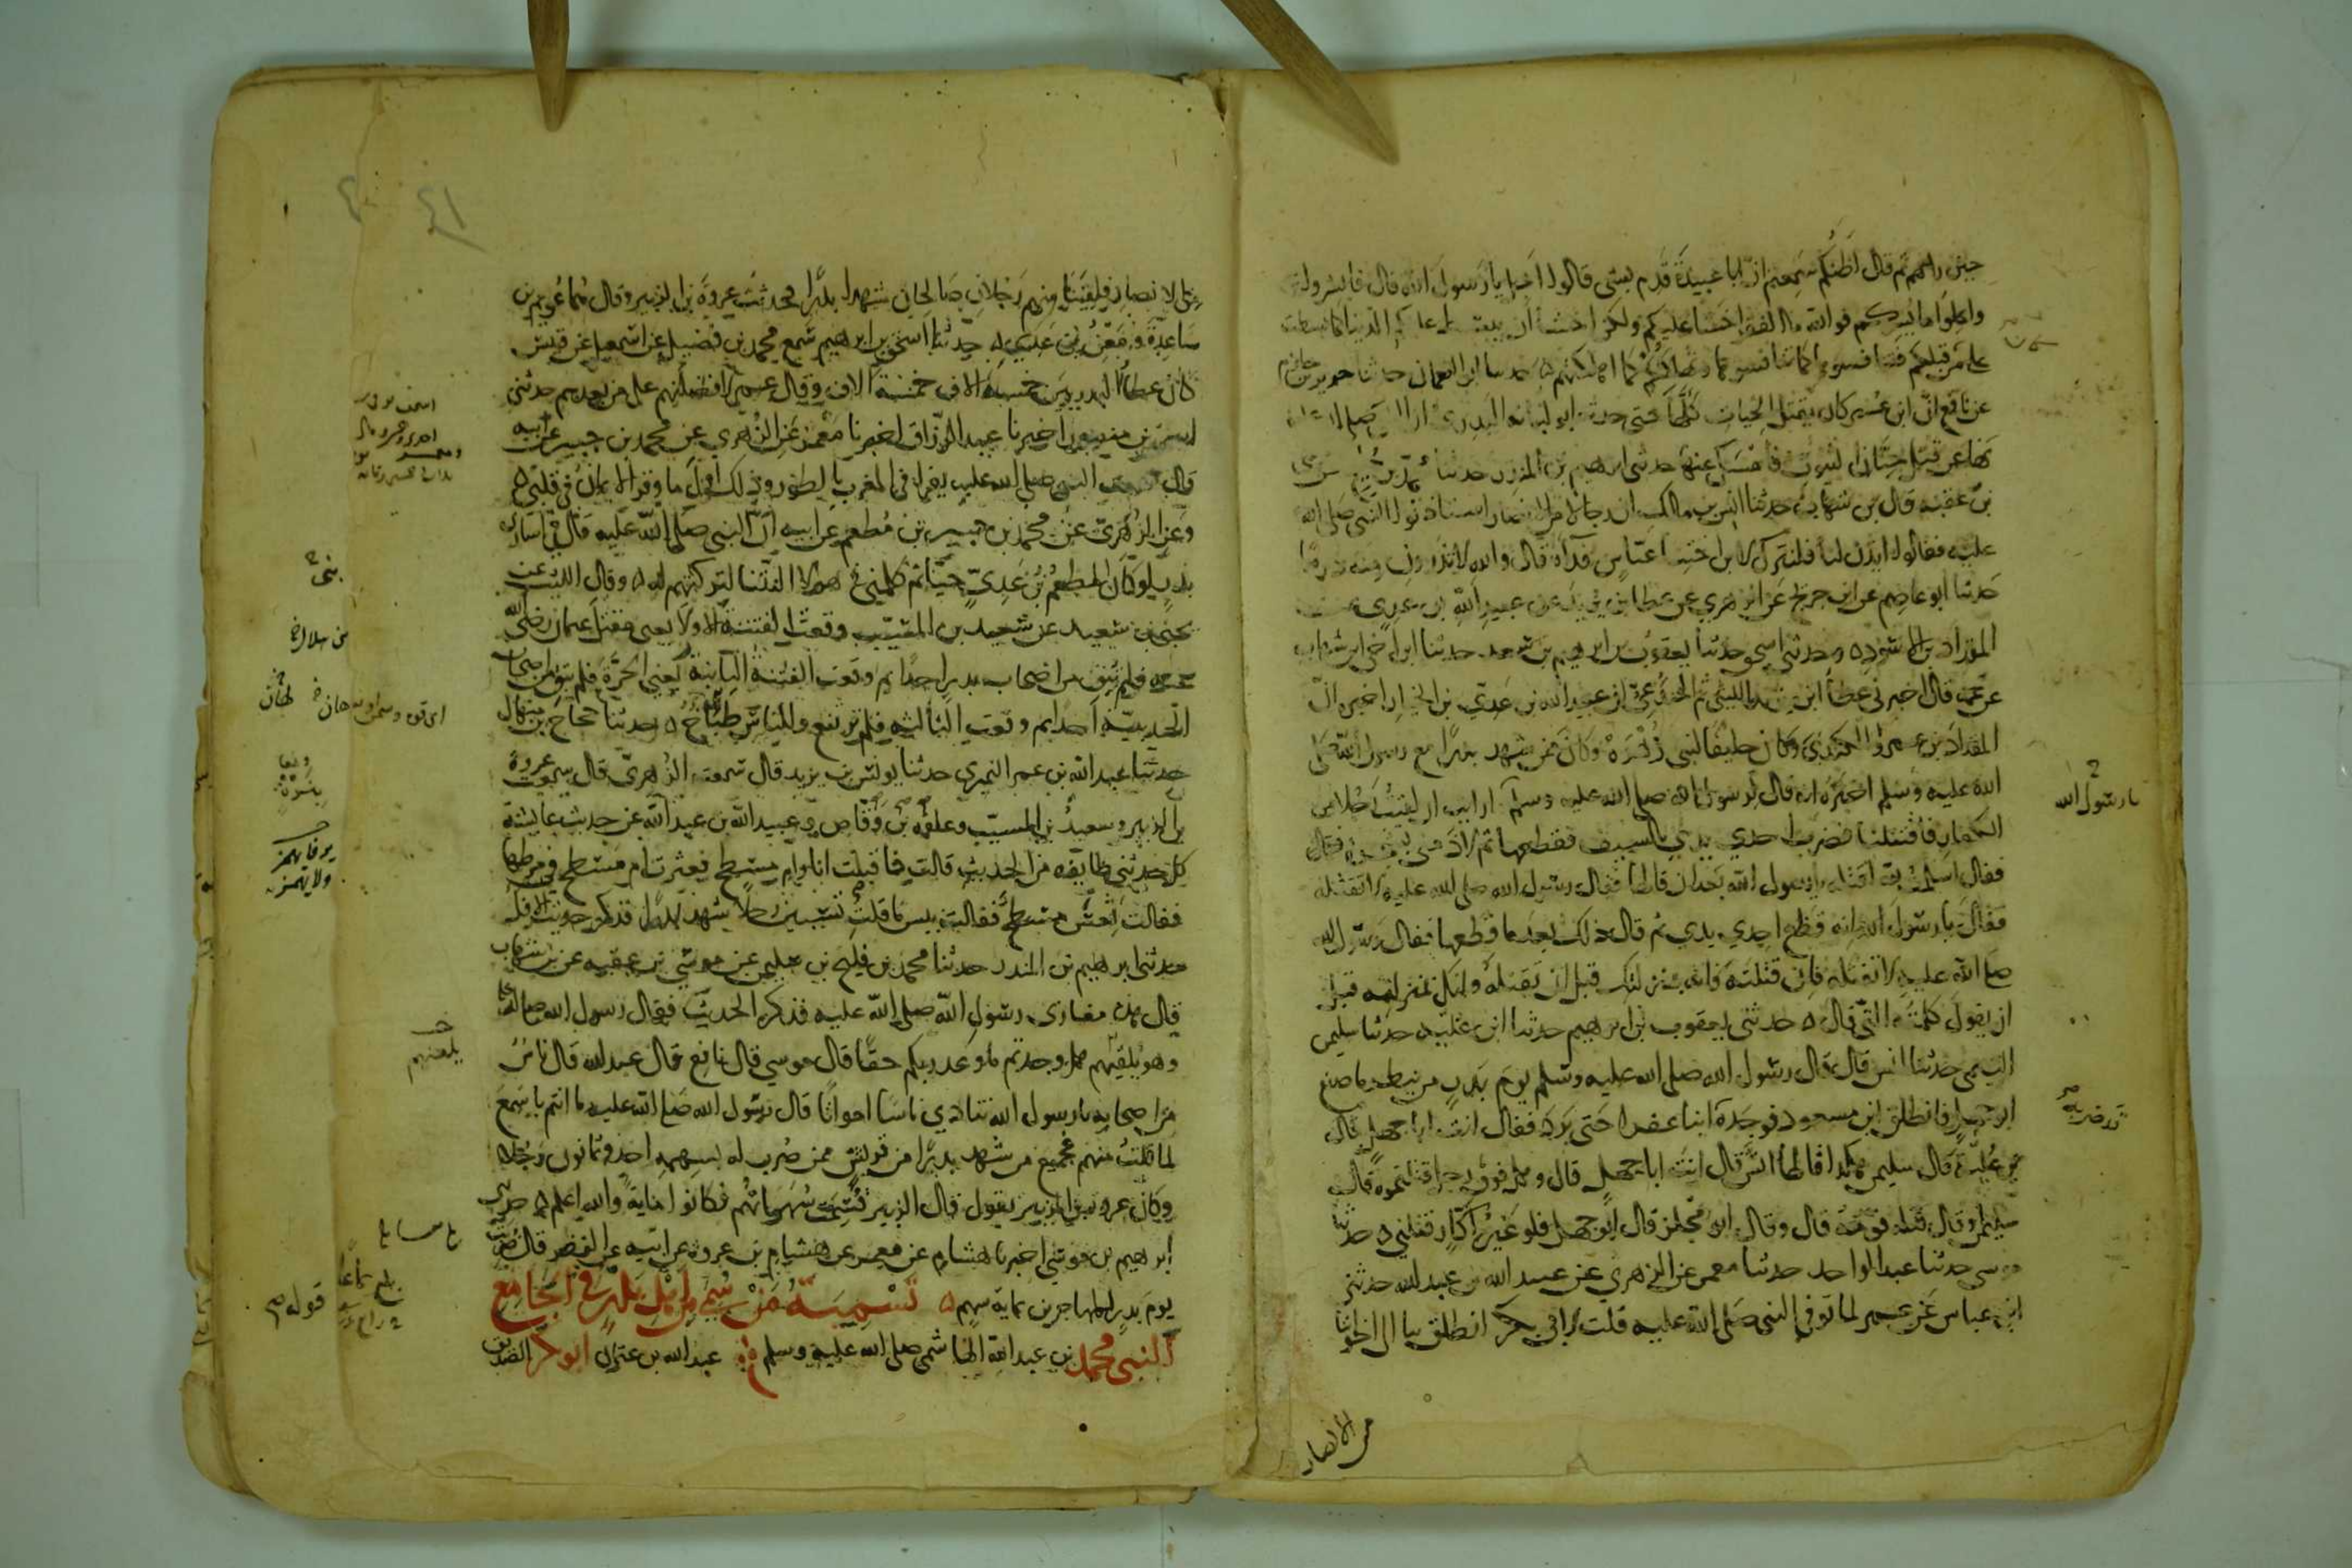 حين رآهم ثم قال أظنكم سمعتم أن أبا عبيدة قدم بشي قالوا أجل يا رسول الله قال فابشروا
واملوا ما يسركم فوالله ما الفقر اخشى عليكم ولكن اخشى أن تبسط عليكم الدنيا كما بسطت
على من قبلكم فتنافسوها كما تنافسوها وتهلككم كما اهلكتهم ه حدثنا ابو النعمان حدثنا جرير بن حازم
عن نافع ان ابن عمر كان يقتل الحيات كلها حتى حدثه ابو لبابة البدري ان النبي صلى الله عليه
نهى عن قتل جنان البيوت فامسك عنها حدثني ابرهيم بن المنذر حدثنا محمد بن فليح عن موسى
بن عقبة قال بن شهاب حدثنا انس بن مالك ان رجالا من الانصار استاذنوا النبي صلى الله
عليه فقالوا ايذن لنا فلنترك لابن اختنا عباس فداه قال والله لا تذرون منه درهما
حدثنا ابو عاصم عن ابن جريج عن الزهري عن عطا بن يزيد عن عبيد الله بن عدي عن
المقداد بن الاسود ه وحدثني اسحق حدثنا يعقوب بن ابرهيم بن سعد حدثنا ابن اخي ابن شهاب
عن عمه قال اخبرني عطا ابن يزيد الليثي ثم الجندعي ان عبيد الله بن عدي بن الخيار اخبره ان
المقداد بن عمرو الكندي وكان حليفا لبني زهرة وكان ممن شهد بدرا مع رسول الله صلى
الله عليه وسلم اخبره انه قال لرسول الله صلى الله عليه وسلم ارايت ان لقيت رجلا من
الكفار فاقتتلنا فضرب احدى يدي بالسيف فقطعها ثم لاذ مني بشجرة فقال
فقال اسلمت لله اقتله يا رسول الله بعد ان قالها فقال رسول الله صلى الله عليه لا تقتله
فقال يا رسول الله انه قطع احدى يدي ثم قال ذلك بعد ما قطعها فقال رسول الله
صلى الله عليه لا تقتله فان قتلته فانه بمنزلتك قبل ان تقتله وانك بمنزلته قبل
ان يقول كلمته التي قال ه حدثني يعقوب بن ابرهيم حدثنا ابن علية حدثنا سليمن
التيمي حدثنا انس قال قال رسول الله صلى الله عليه وسلم يوم بدر من ينظر ما صنع
ابو جهل فانطلق ابن مسعود فوجده ابنا عفرا حتى برد فقال انت ابا جهل قال
بن علية قال سليمن هكذا قالها انس قال انت ابا جهل قال وهل فوق رجل قتلتموه قال
سليمن وقال قتله قومه قال وقال ابو مجلز قال ابو جهل فلو غير اكار قتلني ه حدثنا
موسى حدثنا عبد الواحد حدثنا معمر عن الزهري عن عبيد الله بن عبد الله حدثني
ابن عباس عن عمر لما توفي النبي صلى الله عليه قلت لابي بكر انطلق بنا الى اخواننا
يا رسول الله
قد ضربه
من الانصار
٤١
من الانصار فلقينا منهم رجلان صالحان شهدا بدرا فحدثت عروة بن الزبير وقال هما عويم بن
ساعدة ومعن بن عدي ه حدثنا اسحق بن ابرهيم سمع محمد بن فضيل عن اسمعيل عن قيس
كان عطا البدريين خمسة الاف خمسة الاف وقال عمر لافضلنهم على من بعدهم حدثني
اسحق بن منصور اخبرنا عبد الرزاق اخبرنا معمر عن الزهري عن محمد بن جبير عن ابيه
قال سمعت النبي صلى الله عليه يقرا في المغرب بالطور وذلك اول ما وقر الايمان في قلبي ه
وعن الزهري عن محمد بن جبير بن مطعم عن ابيه ان النبي صلى الله عليه قال في اسارى
بدر لو كان المطعم بن عدي حيا ثم كلمني في هولا النتنى لتركتهم له ه وقال الليث عن
يحيى بن سعيد عن سعيد بن المسيب وقعت الفتنة الاولى يعني مقتل عثمان رضي الله
عنه فلم تبق من اصحاب بدر احدا ثم وقعت الفتنة الثانية يعني الحرة فلم تبق من اصحاب
الحديبية احدا ثم وقعت الثالثة فلم ترتفع وللناس طباخ ه حدثنا حجاج بن منهال
حدثنا عبد الله بن عمر النميري حدثنا يونس بن يزيد قال سمعت الزهري قال سمعت عروة
بن الزبير وسعيد بن المسيب وعلقمة بن وقاص وعبيد الله بن عبد الله عن حديث عايشة
كل حدثني طايفة من الحديث قالت فاقبلت انا وام مسطح فعثرت ام مسطح في مرطها
فقالت تعس مسطح فقالت بيس ما قلت تسبين رجلا شهد بدرا فذكر حديث الافك
حدثنا ابرهيم بن المنذر حدثنا محمد بن فليح بن سليمن عن موسى بن عقبة عن بن شهاب
قال هذه مغازى رسول الله صلى الله عليه فذكر الحديث فقال رسول الله صلى الله عليه
وهو يلقيهم هل وجدتم ما وعد ربكم حقا قال موسى قال نافع قال عبد الله قال ناس
من اصحابه يا رسول الله تنادي ناسا امواتا قال رسول الله صلى الله عليه ما انتم باسمع
لما قلت منهم فجميع من شهد بدرا من قريش ممن ضرب له بسهمه احد وثمانون رجلا
وكان عروة بن الزبير يقول قال الزبير قسمت سهمانهم فكانوا ماية والله اعلم ه حدثني
ابرهيم بن موسى اخبرنا هشام عن معمر عن هشام بن عروة عن ابيه عن الزبير قال ضربت
يوم بدر للمهاجرين بماية سهم ه تسمية من سمي من اهل بدر في الجامع
النبي محمد بن عبد الله الهاشمي صلى الله عليه وسلم عبد الله بن عثمان ابو بكر الصديق
يلعنهم